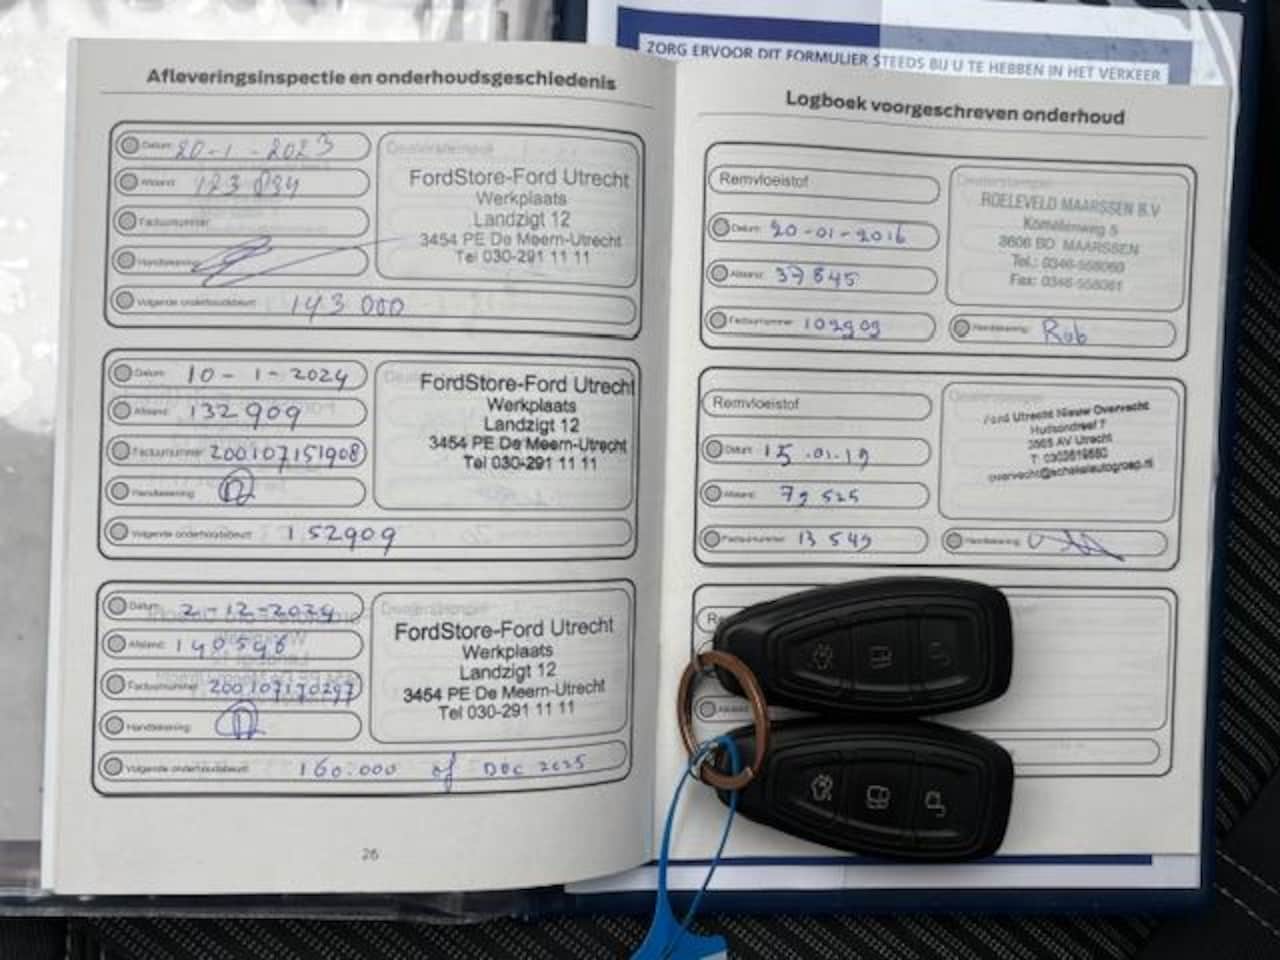 ZORG ERVOOR DIT FORMULIER STEEDS BIJ U TE HEBBEN IN HET VERKEER
Afleveringsinspectie en onderhoudsgeschiedenis
Datum: 20-1-2023
Afstand:
Factuurnummer:
Handtekening:
Volgende onderhoudsbeurt: 143 000
Dealerstempel
FordStore-Ford Utrecht
Werkplaats
Landzigt 12
3454 PE De Meern-Utrecht
Tel 030-291 11 11
Datum: 10-1-2024
Afstand: 132909
Factuurnummer: 200107151908
Handtekening:
Volgende onderhoudsbeurt: 152909
FordStore-Ford Utrecht
Werkplaats
Landzigt 12
3454 PE De Meern-Utrecht
Tel 030-291 11 11
Datum: 2-12-2024
Afstand: 140546
Factuurnummer: 200107170297
Handtekening:
Volgende onderhoudsbeurt: 160.000 of DEC 2025
Dealerstempel
FordStore-Ford Utrecht
Werkplaats
Landzigt 12
3454 PE De Meern-Utrecht
Tel 030-291 11 11
26
Logboek voorgeschreven onderhoud
Remvloeistof
Datum: 20-01-2016
Afstand: 37845
Factuurnummer: 102909
Dealerstempel
ROELEVELD MAARSSEN B.V
5
3606 BD MAARSSEN
Tel.: 0346-558060
Fax: 0346-558061
Handtekening: Rob
Remvloeistof
Datum: 15.01.19
Afstand: 79525
Factuurnummer: 13549
Ford Utrecht Nieuw Overvecht
Hudsondreef 7
3565 AV Utrecht
T: 0302619880
overvecht@schakelautogroep.nl
Handtekening: